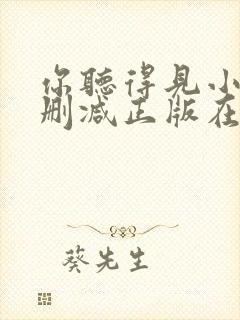 你聽得見小
刪減正版在
葵先生